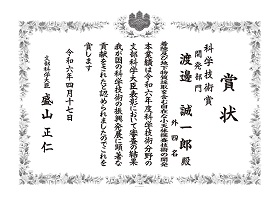 賞状
科学技術賞
開発部門
渡邊 誠一郎 殿
外四名
本業績は令和六年度科学技術分野の
文部科学大臣表彰において審査の結果
我が国の科学技術の振興発展に顕著な
貢献をされたと認められましたのでこれを
賞します
令和六年四月十七日
文部科学大臣 盛山 正仁